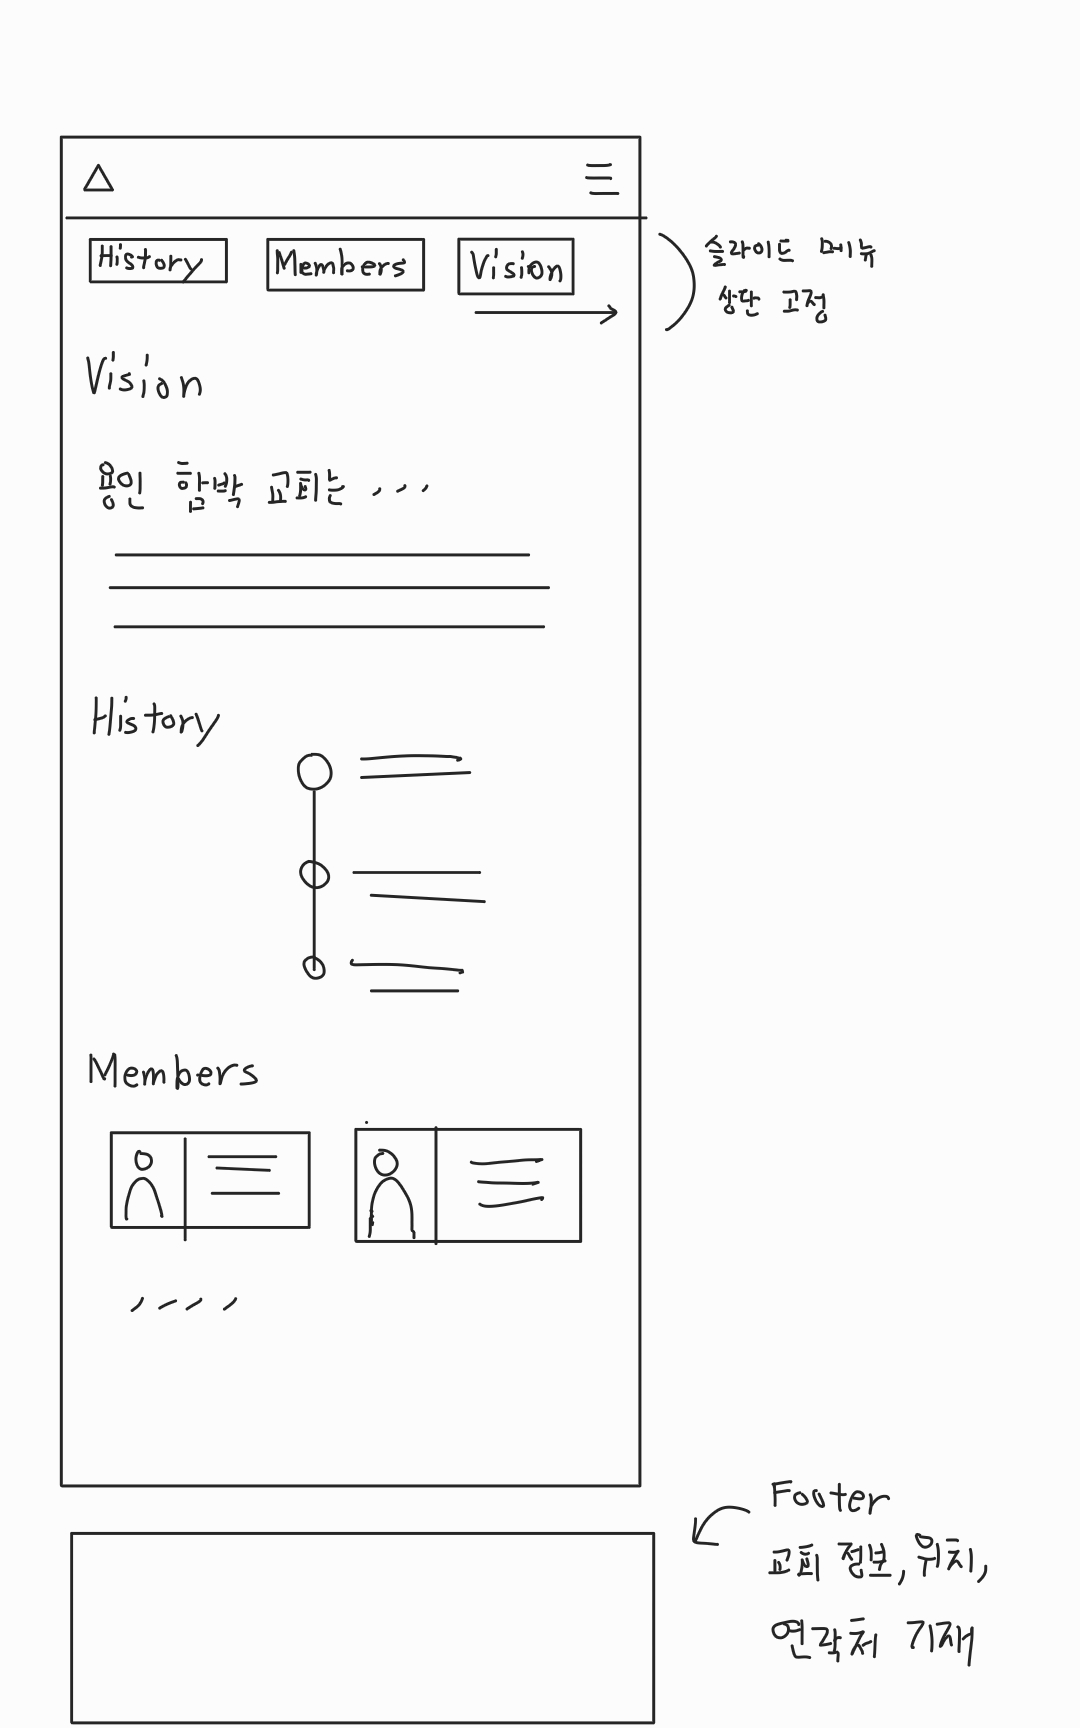 History
Members
Vision
슬라이드 메뉴
상단 고정
Vision
용인 함박 교회는 ...
History
Members
Footer
교회 정보, 위치,
연락처 기재